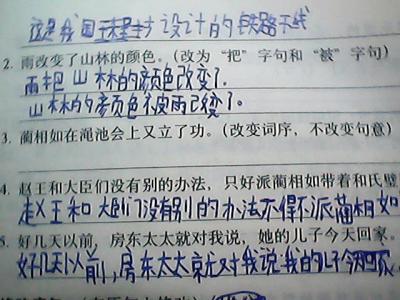 这是我国 设计的铁路干线
2. 雨改变了山林的颜色。(改为“把”字句和“被”字句)
雨把山林的颜色改变了.
山林的颜色被雨改变了.
3. 蔺相如在渑池会上又立了功。(改变词序，不改变句意)
4. 赵王和大臣们没有别的办法，只好派蔺相如带着和氏璧
赵王和大臣们没有别的办法不得不派蔺相如
5. 好几天以前，房东太太就对我说，她的儿子今天回家。
好几天以前,房东太太就对我说我的儿子今天回家